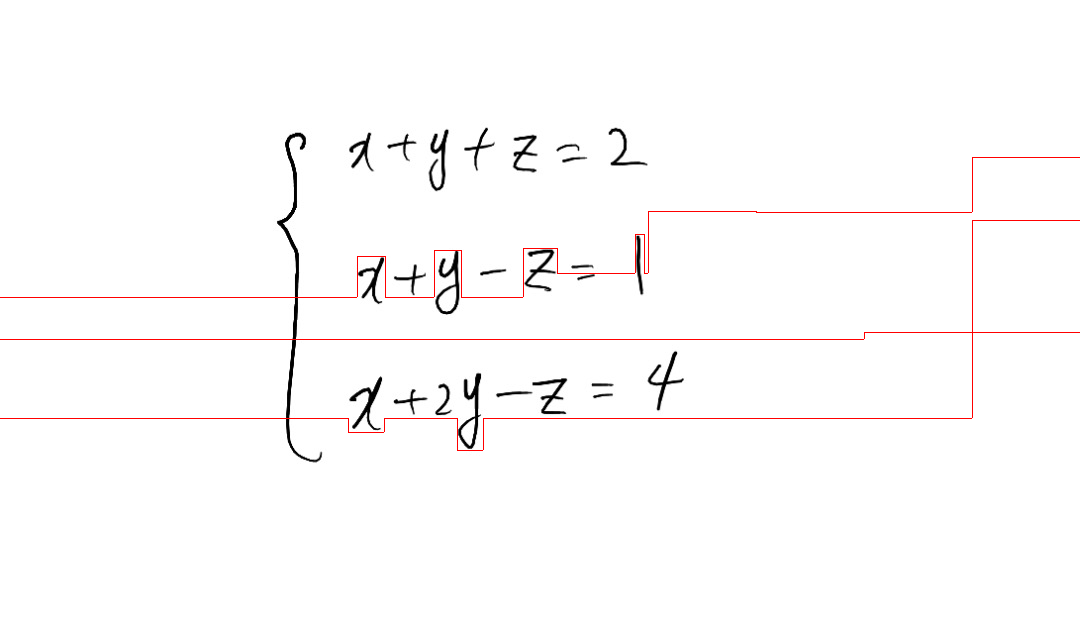 x+y+z=2
x+y-z=1
x+2y-z=4